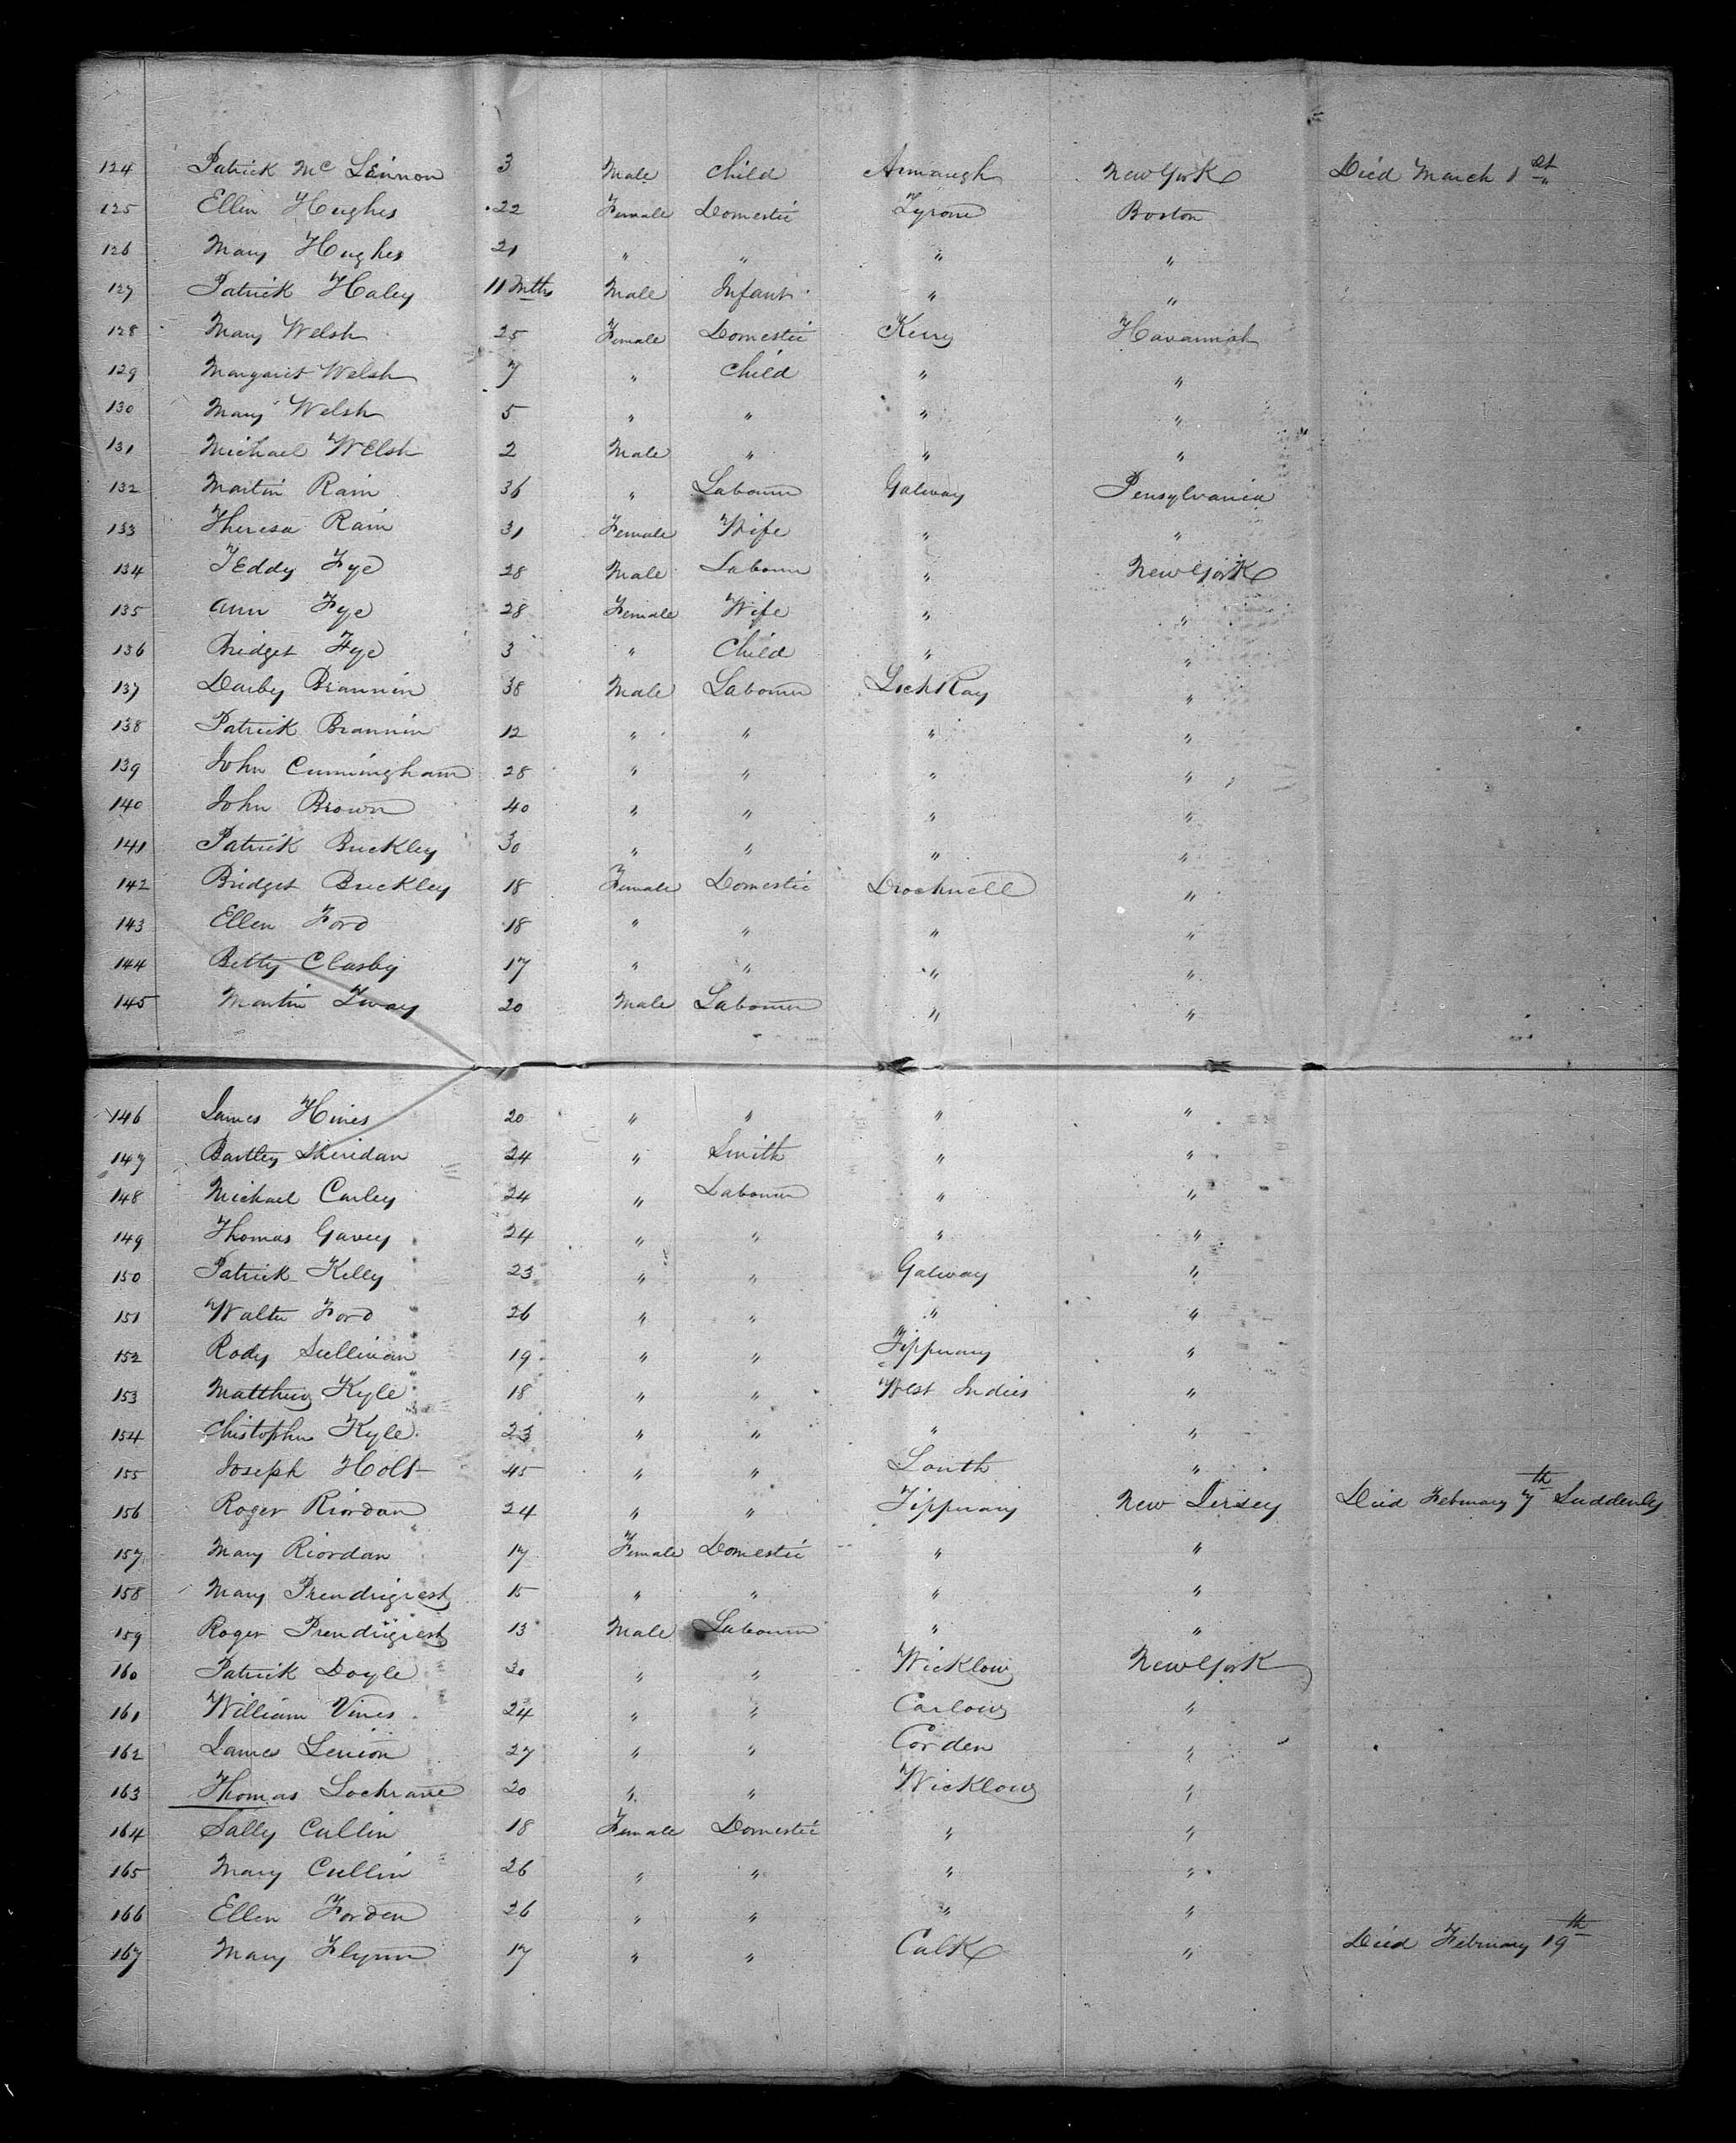 124 Patrick Mc Lennon 3 Male Child Armaugh New York Died March 1st
125 Ellen Hughes 22 Female Domestic Tyrone Boston
126 Mary Hughes 21 " " " "
127 Patrick Haley 11 Mths Male Infant " "
128 Mary Welsh 25 Female Domestic Kerry Havannah
129 Margaret Welsh 7 " Child " "
130 Mary Welsh 5 " " " "
131 Michael Welsh 2 Male " " "
132 Martin Rain 36 " Labourer Galway Pensylvania
133 Theresa Rain 31 Female Wife " "
134 Teddy Fye 28 Male Labourer " New York
135 Ann Fye 28 Female Wife " "
136 Bridget Fye 3 " Child " "
137 Darby Brannin 38 Male Labourer LochRay "
138 Patrick Brannin 12 " " " "
139 John Cunningham 28 " " " "
140 John Brown 40 " " " "
141 Patrick Buckley 30 " " " "
142 Bridget Buckley 18 Female Domestic Drochnell "
143 Ellen Ford 18 " " " "
144 Betty Clasby 17 " " " "
145 Martin 20 Male Labourer " "
146 James Hines 20 " " " "
147 Bartley Sheridan 24 " Smith " "
148 Michael Carley 24 " Labourer " "
149 Thomas Gavey 24 " " " "
150 Patrick Kelly 23 " " Galway "
151 Walter Ford 26 " " " "
152 Rody Sullivan 19 " " Tipperary "
153 Matthew Kyle 18 " " West Indies "
154 Chistopher Kyle 23 " " " "
155 Joseph Holt 45 " " Louth "
156 Roger Riordan 24 " " Tipperary New Jersey Died February 7th Suddenly
157 Mary Riordan 17 Female Domestic " "
158 Mary Prendrigrest 15 " " " "
159 Roger Prendrigrest 13 Male Labourer " "
160 Patrick Doyle 30 " " Wicklow New York
161 William Vines 24 " " Carlow "
162 James Lenion 27 " " Corden "
163 Thomas Lochrane 20 " " Wicklow "
164 Sally Cullin 18 Female Domestic " "
165 Mary Cullin 26 " " " "
166 Ellen Forden 26 " " " "
167 Mary Flynn 17 " " " Died February 19th